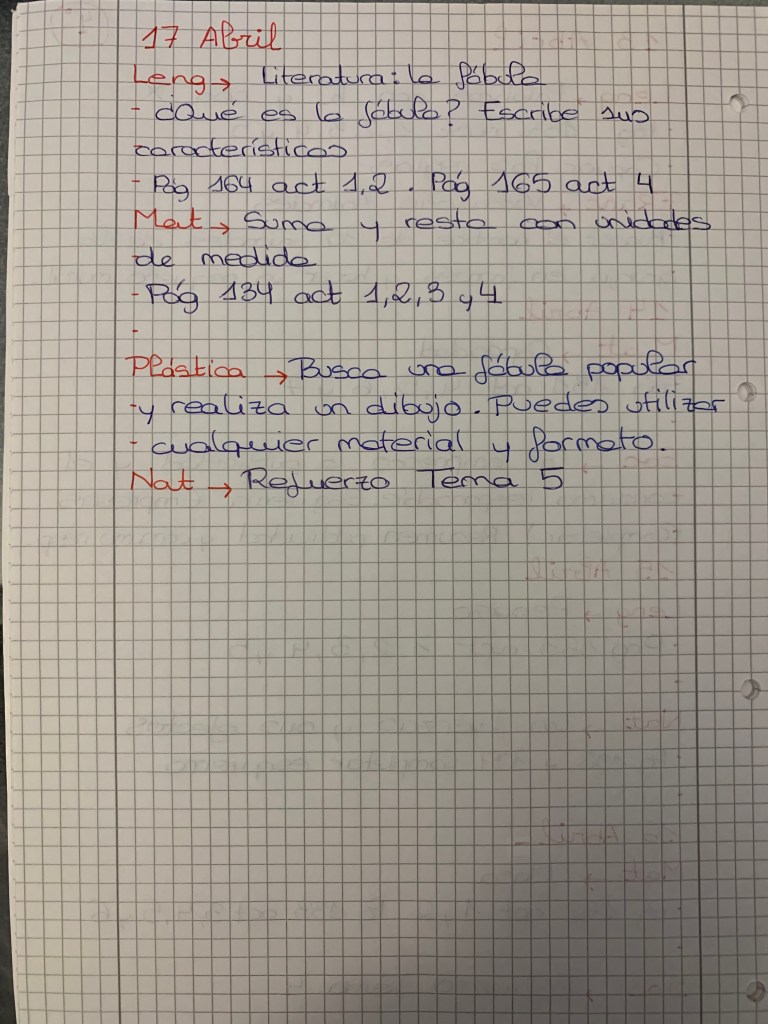 17 Abril
Leng → Literatura: la fábula
- ¿Qué es la fábula? Escribe sus
características
- Pág 164 act 1,2. Pág 165 act 4
Mat → Suma y resta con unidades
de medida
- Pág 134 act 1,2,3 y 4
-
Plástica → Busca una fábula popular
- y realiza un dibujo. Puedes utilizar
- cualquier material y formato.
Nat → Refuerzo Tema 5